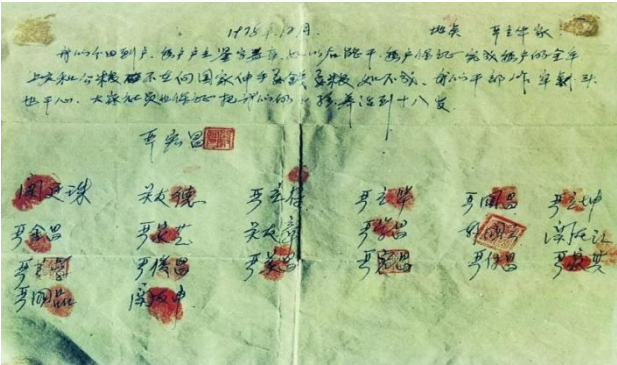 1978年12月. 地点 严立华家
我们分田到户,每户户主签字盖章,如以后能干,每户保证完成每户的全年
上交和公粮,不在向国家伸手要钱要粮,如不成,我们干部作牢刹头
也干心,大家社员也保证把我们的小孩养活到十八岁.
严宏昌
关廷珠 关友德 严立符 严立华 严国昌 严立坤
严金昌 严家芝 关友章 严学昌 韩国云 关友江
严立学 严俊昌 严美昌 严宏昌 严付昌 严家其
严国品 关友申